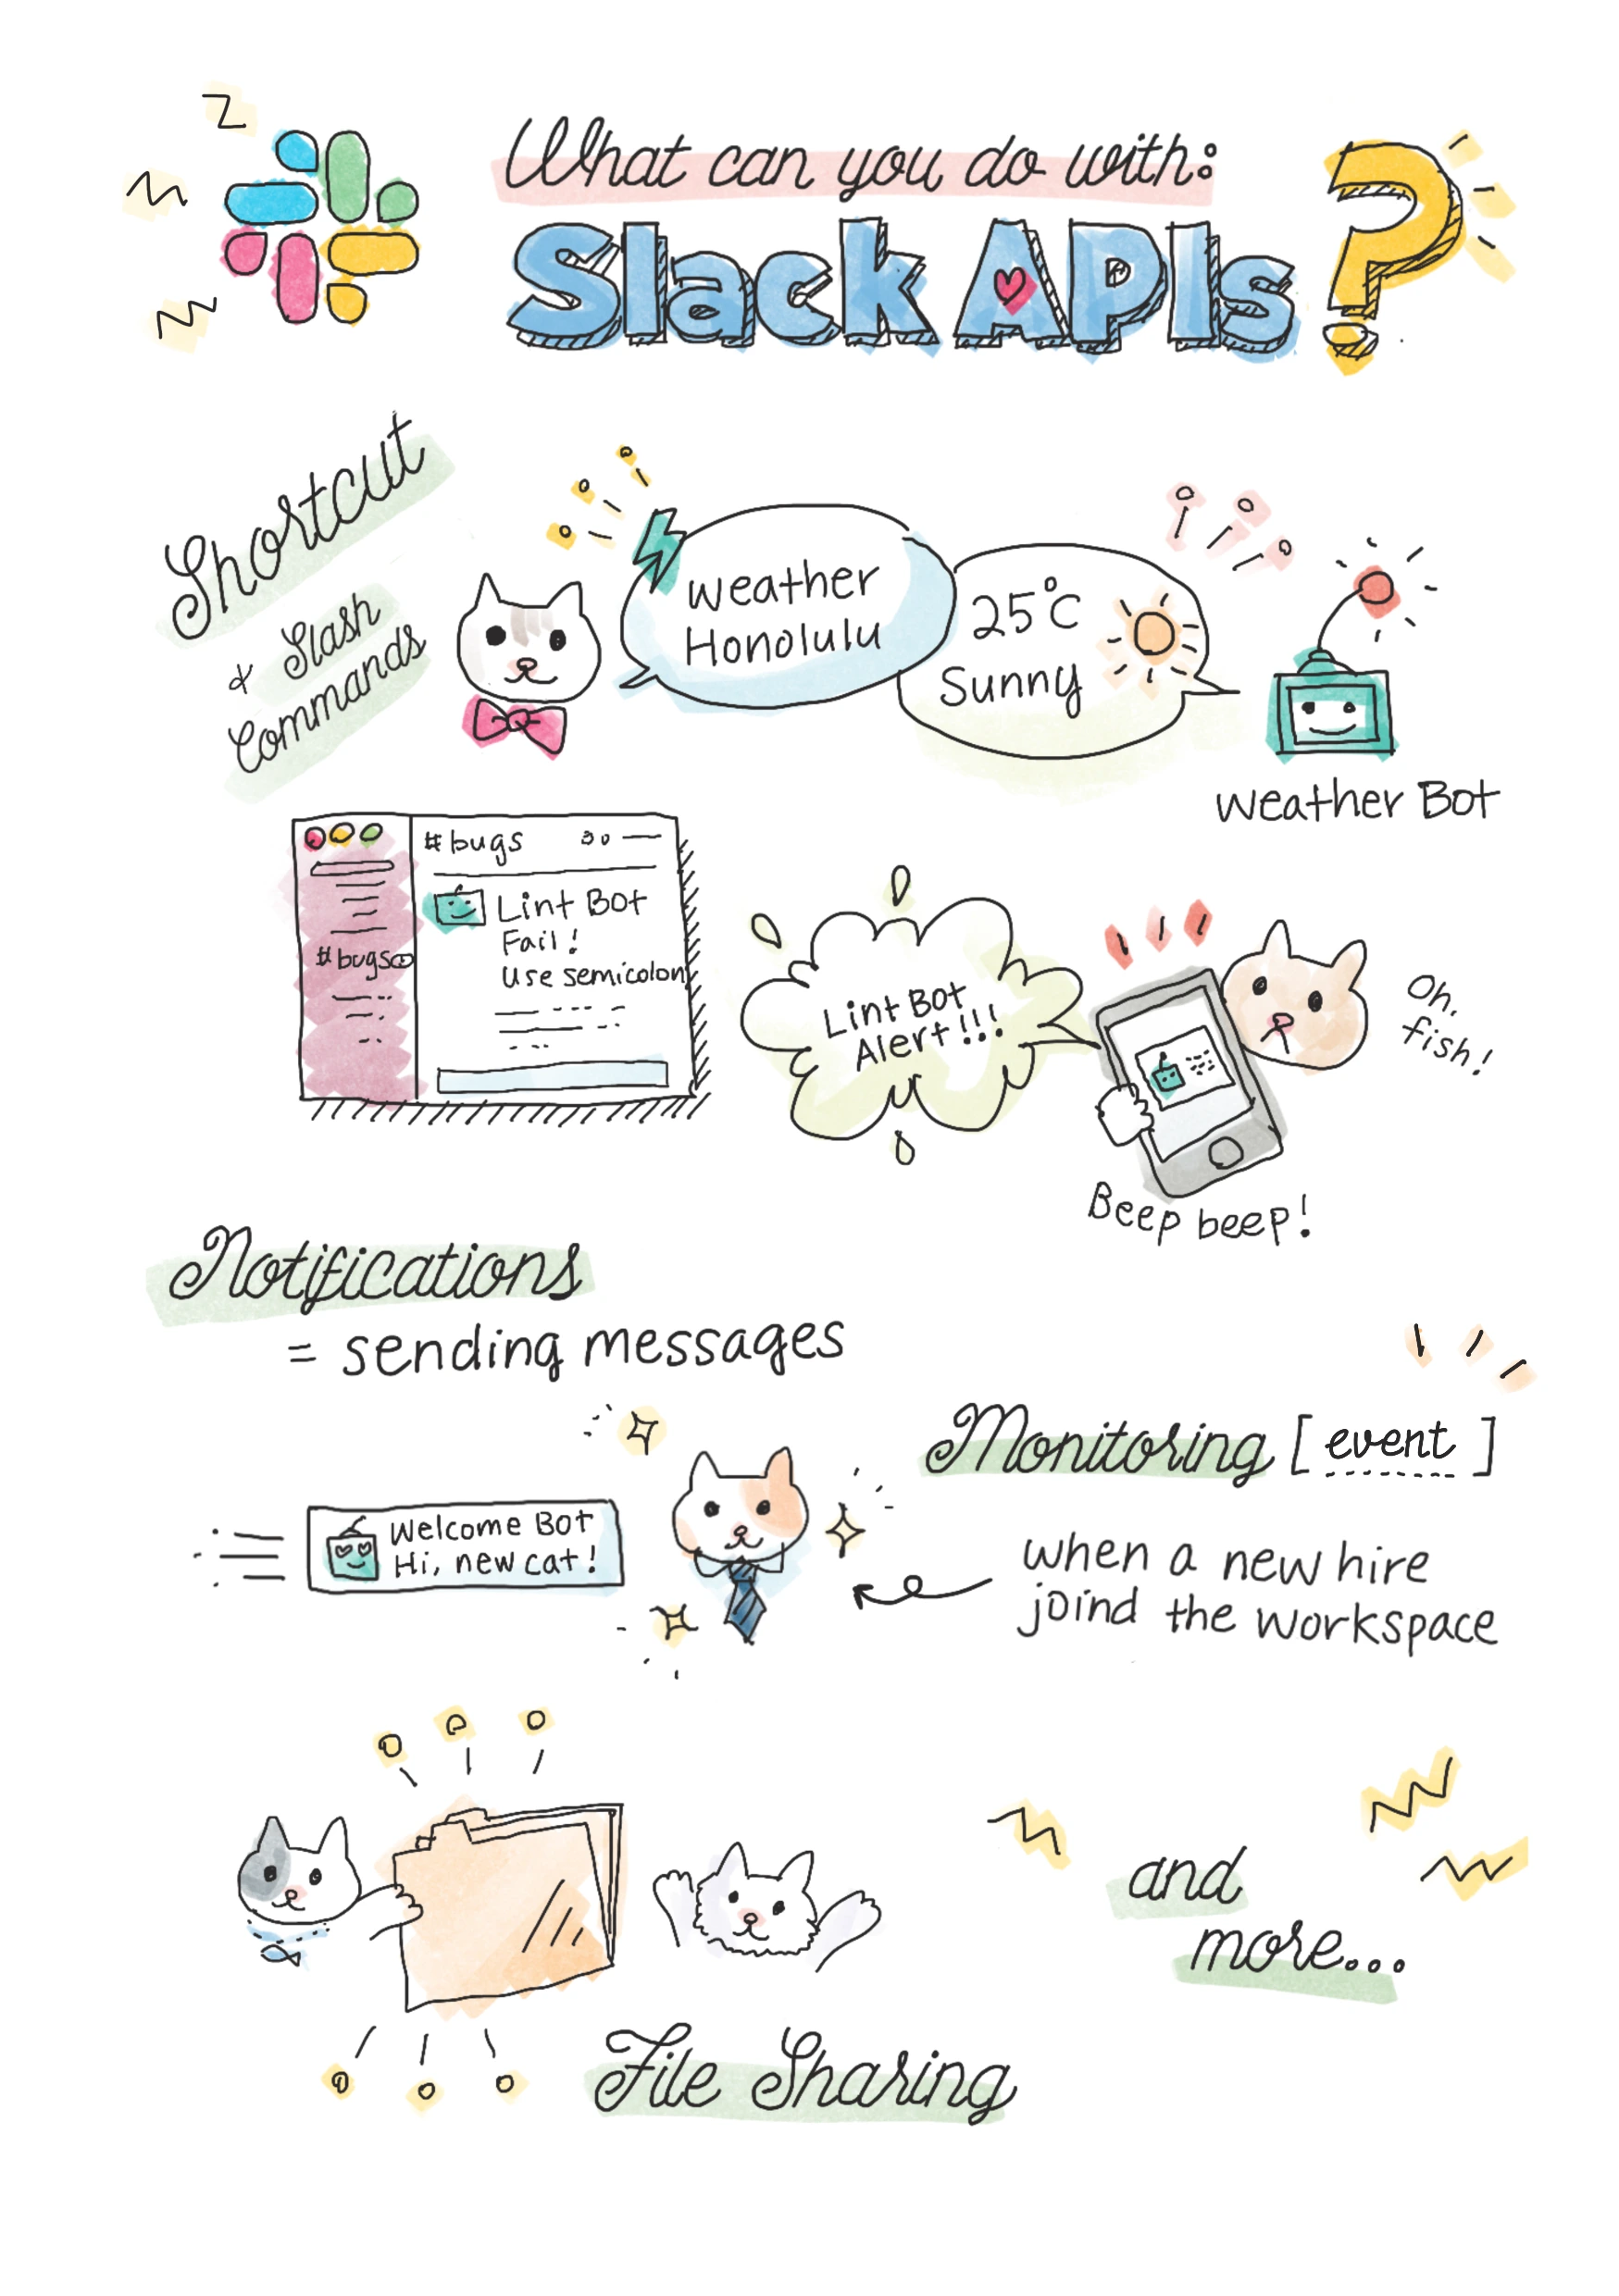 What can you do with:
Slack APIs?
Shortcut
& Slash
Commands
weather
Honolulu
25°C
Sunny
Weather Bot
#bugs
#bugs
Lint Bot
Fail!
Use semicolon
Lint Bot
Alert!!!
Oh,
fish!
Beep beep!
Notifications
= sending messages
Monitoring [event]
Welcome Bot
Hi, new cat!
when a new hire
joind the workspace
File Sharing
and
more...